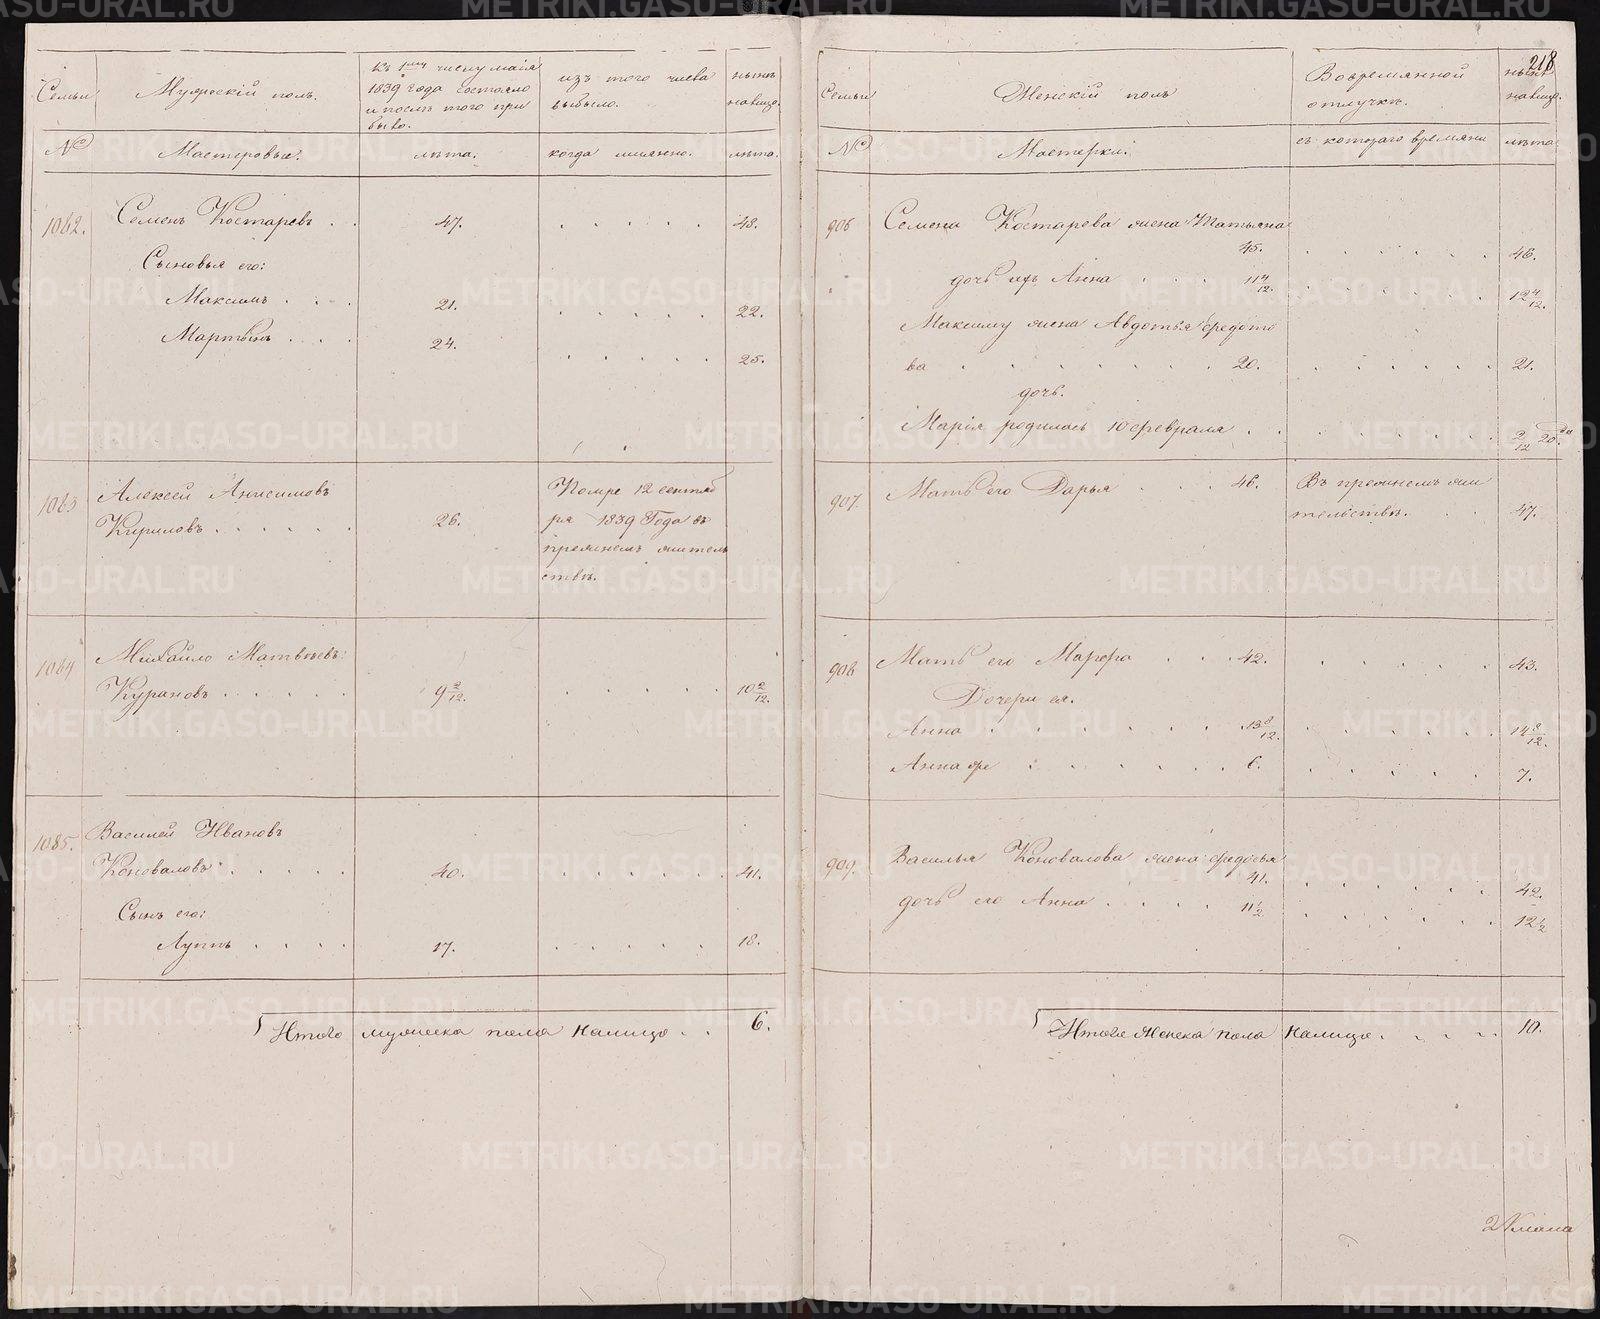 218
Семьи
Мужескій полъ.
къ 1му числу маія
1839 года состояло
и послѣ того при
было.
изъ того числа
выбыло.
нынѣ
налицо.
№
Мастеровые.
лѣта.
когда именно.
лѣта.
1082.
Семенъ Костаревъ . .
47.
48.
Сыновья его:
Максимъ . . .
21.
22.
Мартынъ . . .
24.
25.
1083
Алексей Анисимовъ
Кириловъ . . . . . .
26.
Помре 12 сентяб
ря 1839 Года въ
прежнемъ житель
ствѣ.
1084
Михайло Матвѣевъ
Курановъ . . . . .
9 2/12.
10 2/12.
1085.
Василей Ивановъ
Коноваловъ . . . . .
40.
41.
Сынъ его:
Луппъ . . . .
17.
18.
Итого мужеска пола налицо . .
6.
Семьи
Женскій полъ
Вовремянной
отлучкѣ.
нынѣ
налицо.
№
Мастерки:
съ котораго времяни
лѣта
906
Семена Костарева жена Татьяна
45.
46.
дочь ихъ Анна . . . .
11 4/12.
12 4/12.
Максиму жена Авдотья Федото
ва . . . . . . . .
20.
21.
дочь.
Марія родилась 10 февраля . .
2/12 20.
907.
Мать его Дарья . . .
46.
Въ прежнемъ жи
тельствѣ. . .
47.
908
Мать его Марфа . . .
42.
43.
Дочери ея.
Анна . . . . . . . .
13 8/12.
14 8/12.
Аннафе . . . . . .
6.
7.
909.
Василья Коновалова жена Федосья
41.
42.
дочь его Анна . . . .
11 1/2
12 1/2
Итого Женска пола налицо . . . .
10.